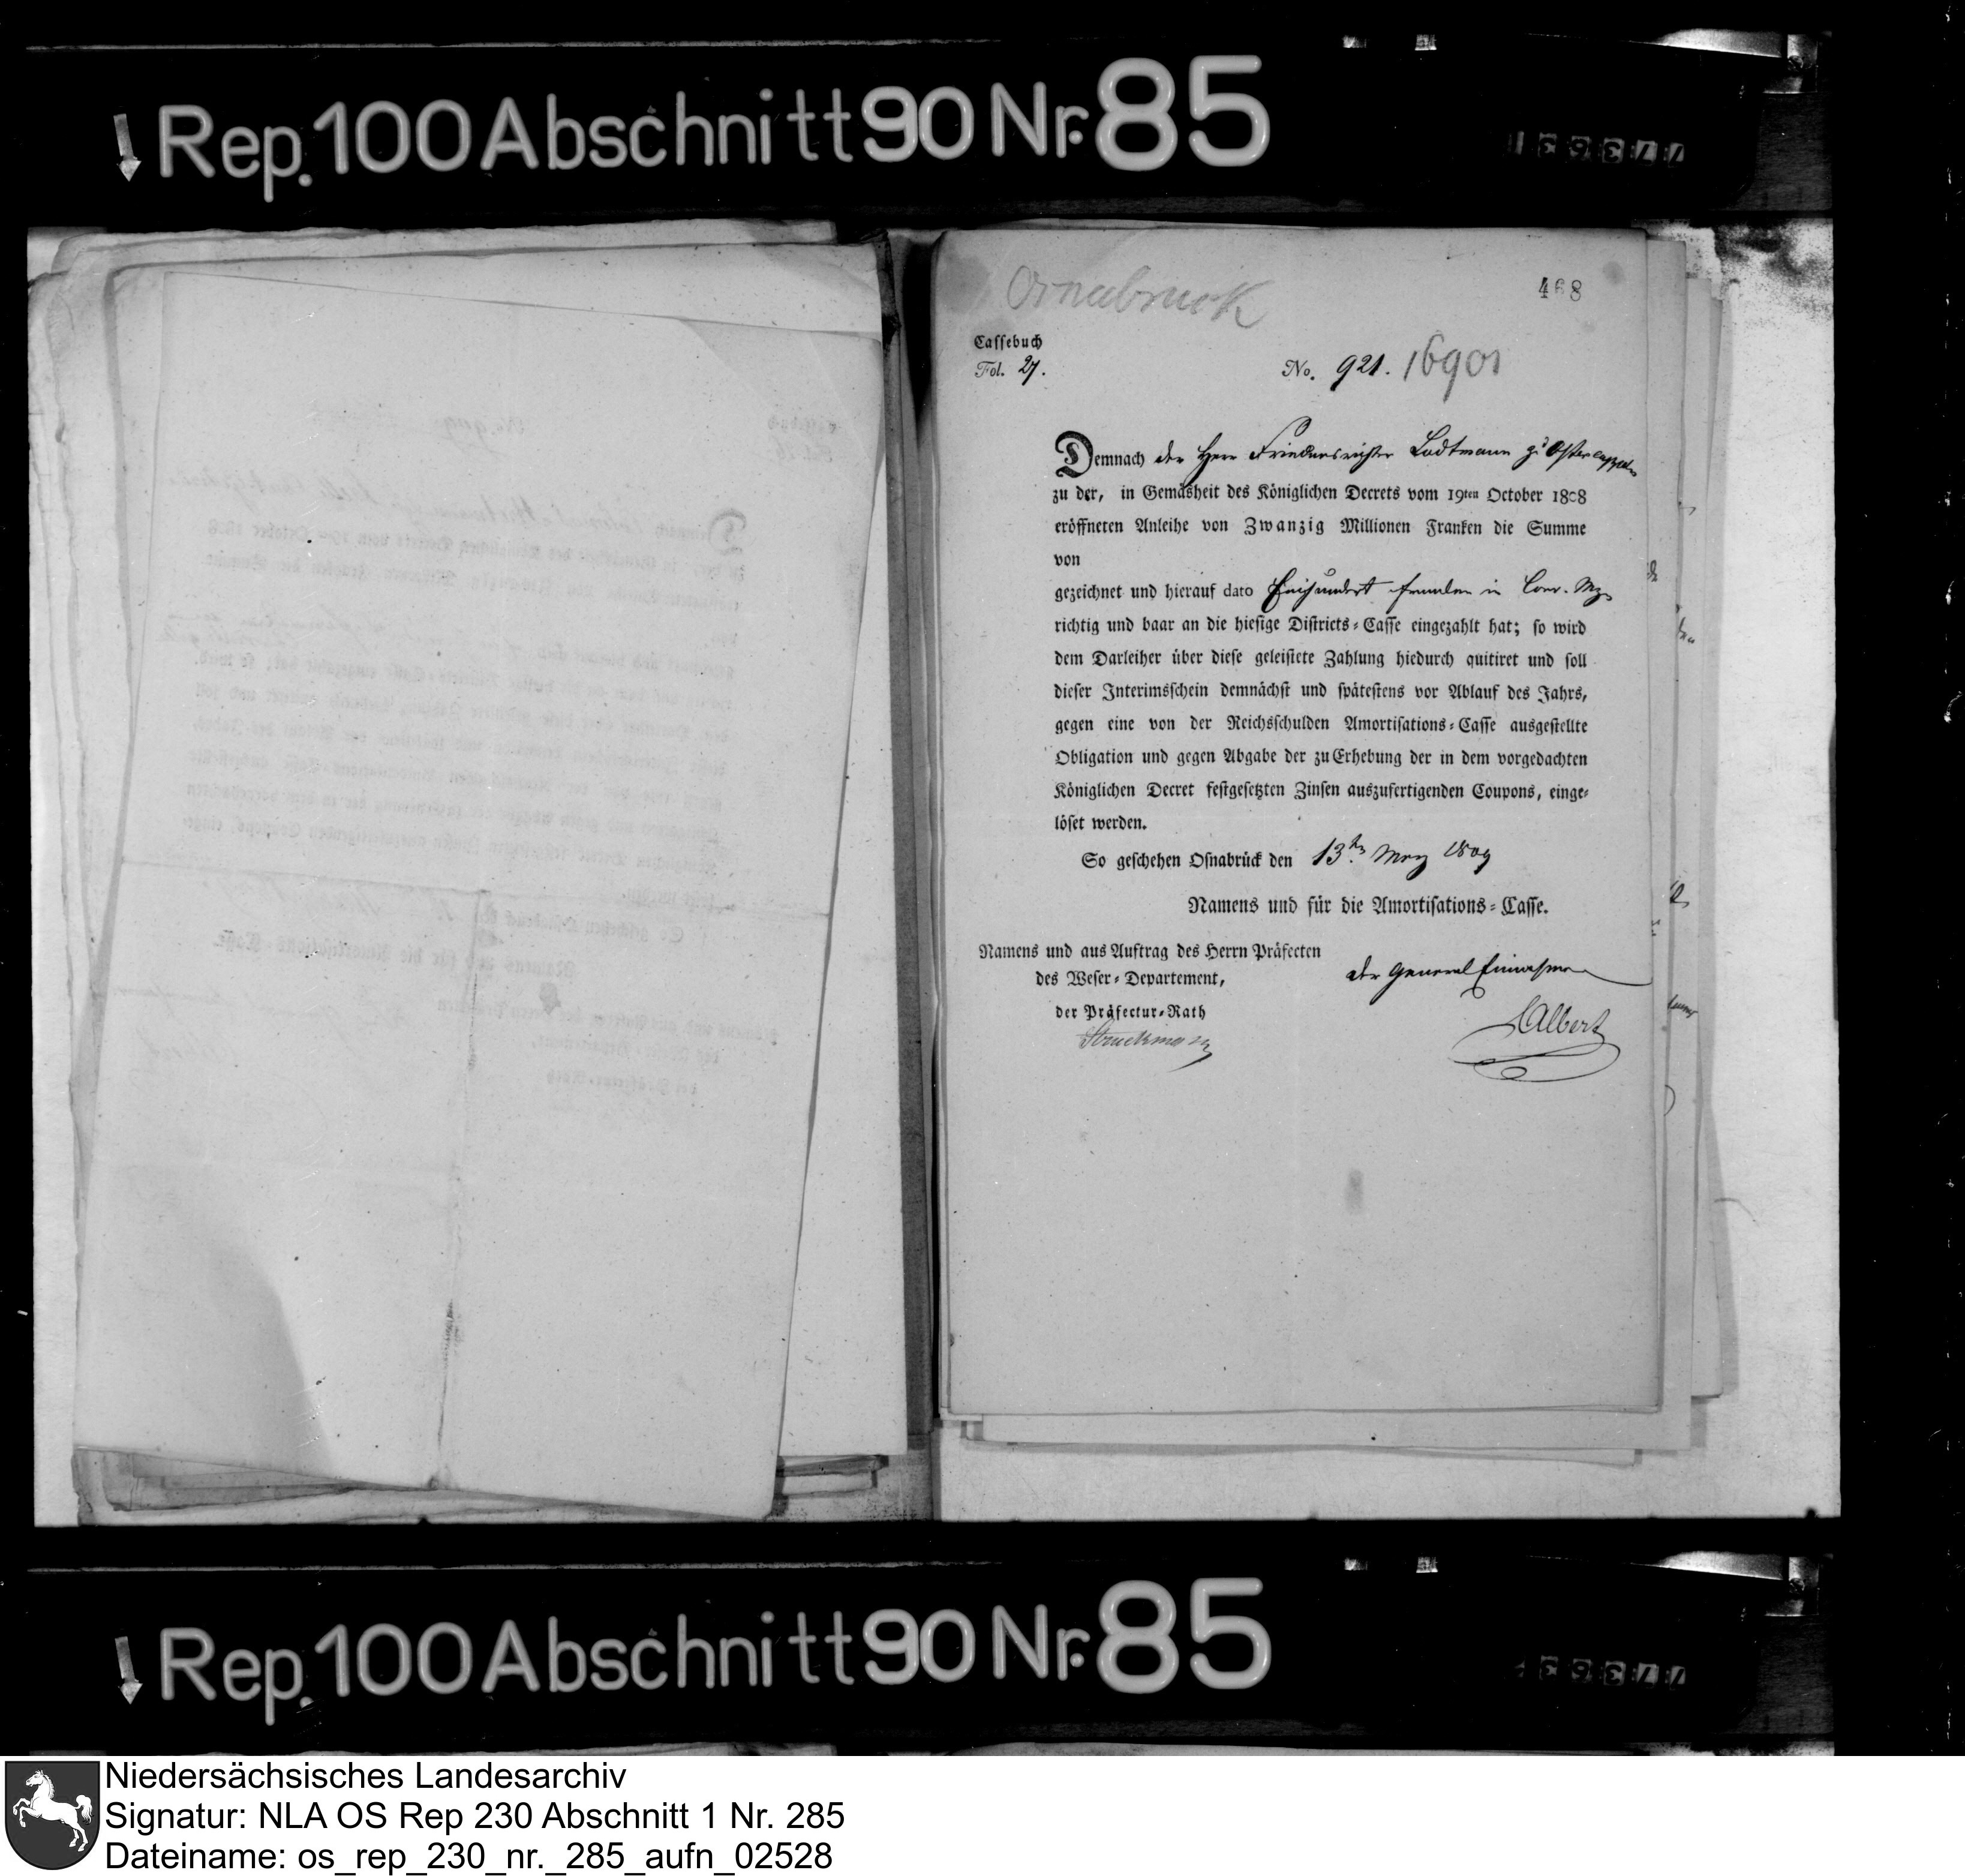 Rep. 100 Abschnitt 90 Nr. 85
Osnabruck
468
Cassebuch
Fol. 27.
No. 921. 16901
Demnach der Herr Friedensrichter Lodtmann zu Ostercappeln
zu der, in Gemäsheit des Königlichen Decrets vom 19ten October 1808
eröffneten Anleihe von Zwanzig Millionen Franken die Summe
von
gezeichnet und hierauf dato Einhundert franken in Conv. Mze
richtig und baar an die hiesige Districts-Casse eingezahlt hat; so wird
dem Darleiher über diese geleistete Zahlung hiedurch quitiret und soll
dieser Interimsschein demnächst und spätestens vor Ablauf des Jahrs,
gegen eine von der Reichsschulden Amortisations-Casse ausgestellte
Obligation und gegen Abgabe der zu Erhebung der in dem vorgedachten
Königlichen Decret festgesetzten Zinsen auszufertigenden Coupons, einge-
löset werden.
So geschehen Osnabrück den 13ten Merz 1809
Namens und für die Amortisations-Casse.
Namens und aus Auftrag des Herrn Präfecten
des Weser-Departement,
der Präfectur-Rath
Struckmann
der General Einnehmer
Albert
Rep. 100 Abschnitt 90 Nr. 85
Niedersächsisches Landesarchiv
Signatur: NLA OS Rep 230 Abschnitt 1 Nr. 285
Dateiname: os_rep_230_nr._285_aufn_02528